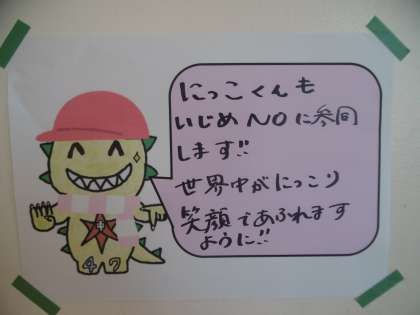 にっこくんも
いじめNOに参同
します!!
世界中がにっこり
笑顔であふれます
ように!!
中
4 7